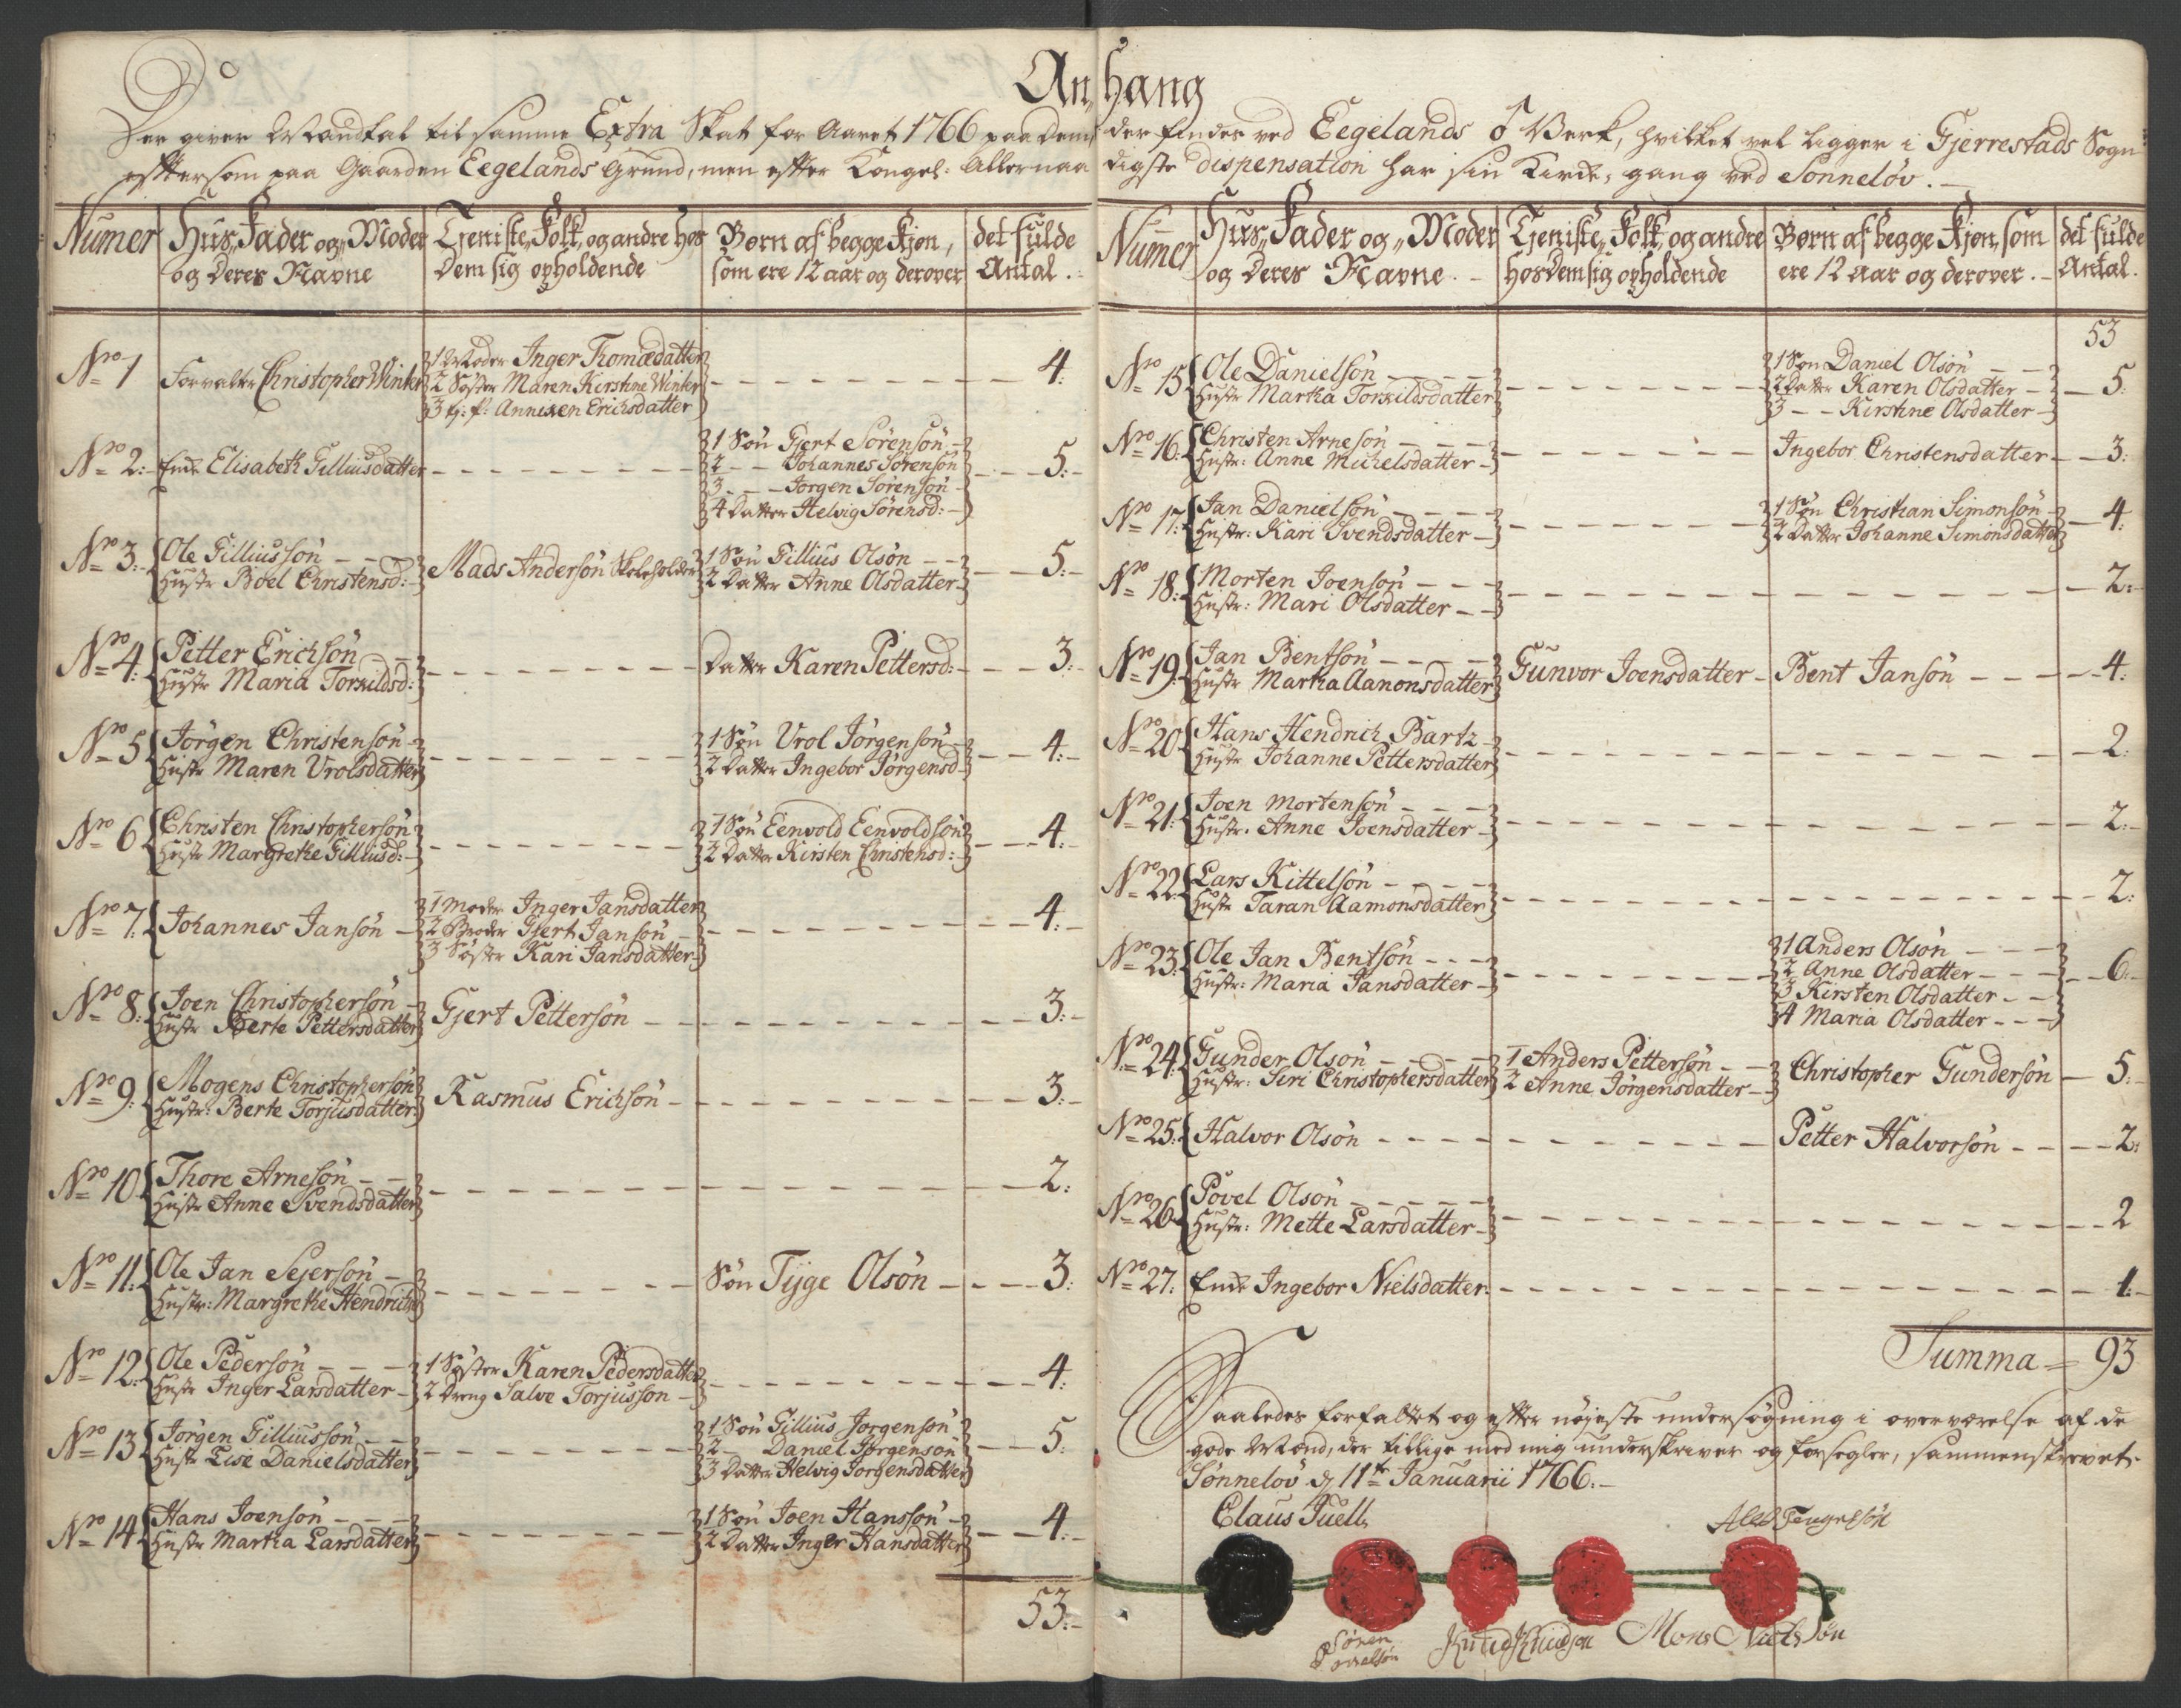 Anhang
Der giver Mandtal til samme Extra Skat for Aaret 1766 paa dem der findes ved Eegelands ♂ Verk, hvilket vel ligger i Gjerrestads Sogn
eftersom paa Gaarden Eegelands Grund, men efter Kongel: Allernaadigste dispensation har sin Kirke-gang ved Sonneløv.
Numer | Huus-Fader og Moder og deres Navne | Tjeniste-Folk, og andre hos dem sig opholdende | Børn af begge Kjøn, som ere 12 aar og derover | det fulde Antal.
No 1 Forvalter Christopher Winter | 1 Moder Inger Thomædatter | 4.
2 Søster Maren Kirstine Winter
3 tj: p: Anniken Erichsdatter
No 2: Enke Elisabeth Gilliusdatter | 1 Søn Gjert Sörensön | 5:
2 Johannes Sörensön
3 Jörgen Sörensön
4 Datter Helvig Sörensd:
No 3: Ole Gilliussön | Mads Andersön Skoleholder | 1 Søn Gillius Olsön | 5:
Hustr Boel Christensd: | 2 Datter Anne Olsdatter
No 4: Petter Erichsön | Datter Karen Pettersd: | 3:
Hustr Maria Torkildsd:
No 5 Jörgen Christensön | 1 Søn Vrol Jörgensön | 4:
Hustr Maren Vrolsdatter | 2 Datter Ingebor Jörgensd
No 6 Christen Christophersön | 1 Søn Eenvold Eenvoldsön | 4:
Hustr Margrethe Gilliusd: | 2 Datter Kirsten Christensd:
No 7: Johannes Jansön | 1 Moder Inger Jansdatter | 4:
2 Broder Gjert Jansön
3 Söster Kari Jansdatter
No 8: Joen Christophersön | Gjert Pettersön | 3:
Hustr Berte Pettersdatter
No 9: Mogens Christophersön | Rasmus Erichsön | 3:
Hustr: Berte Torjusdatter
No 10 Thore Arnesön | 2:
Hustr Anne Svendsdatter
No 11: Ole Jan Sejersön | Søn Tyge Olsön | 3:
Hustr: Margrethe Hendrichsd
No 12: Ole Pedersön | 1 Søster Karen Pedersdatter | 4:
Hustr Inger Larsdatter | 2 Dreng Salve Torjussön
No 13 Jörgen Gilliussön | 1 Søn Gillius Jörgensön | 5:
Hustr Lise Danielsdatter | 2 Daniel Jörgensön
3 Datter Helvig Jörgensdatter
No 14 Hans Joensön | 1 Søn Joen Hanssön | 4:
Hustr Martha Larsdatter | 2 Datter Inger Hansdatter
53:
Numer | Huus-Fader og Moder og deres Navne | Tjeniste-Folk, og andre hos dem sig opholdende | Børn af begge Kjøn, som ere 12 aar og derover. | det fulde Antal.
53
No 15 Ole Danielsön | 1 Søn Daniel Olsön | 5:
Hustr Martha Torkildsdatter | 2 Datter Karen Olsdatter
3 Kirstine Olsdatter
No 16: Christen Arnesön | Ingebor Christensdatter | 3:
Hustr: Anne Michelsdatter
No 17: Jan Danielsön | 1 Søn Christian Simonsön | 4:
Hustr: Kari Svendsdatter | 2 Datter Johanne Simonsdatter
No 18: Morten Joensön | 2:
Hustr: Mari Olsdatter
No 19: Jan Bentsön | Gunvor Joensdatter | Bent Jansön | 4:
Hustr Martha Aanonsdatter
No 20 Hans Hendrich Bartz | 2:
Hustr Johanne Pettersdatter
No 21: Joen Mortensön | 2:
Hustr. Anne Joensdatter
No 22: Lars Kittelsön | 2:
Hustr Taran Aamonsdatter
No 23: Ole Jan Bentsön | 1 Anders Olsön | 6:
Hustr: Maria Jansdatter | 2 Anne Olsdatter
3 Kirsten Olsdatter
4 Maria Olsdatter
No 24: Gunder Olsön | 1 Anders Pettersön | Christopher Gundersön | 5:
Hustr: Siri Christophersdatter | 2 Anne Jörgensdatter
No 25: Halvor Olsön | Petter Halvorsön | 2:
No 26 Povel Olsön | 2
Hustr: Mette Larsdatter
No 27: Enke Ingebor Nielsdatter | 1:
Summa = 93
Saaledes forfattet og efter nøjeste undersøgning i overværelse af de
gode Mænd, der tillige med mig underskriver og forsegler, sammenskrevet.
Sønneløv d 11te Januarii 1766.
Claus Juell
Aleb Tengelsön
Sören
Knud Knudsøn
Mons Nielsøn